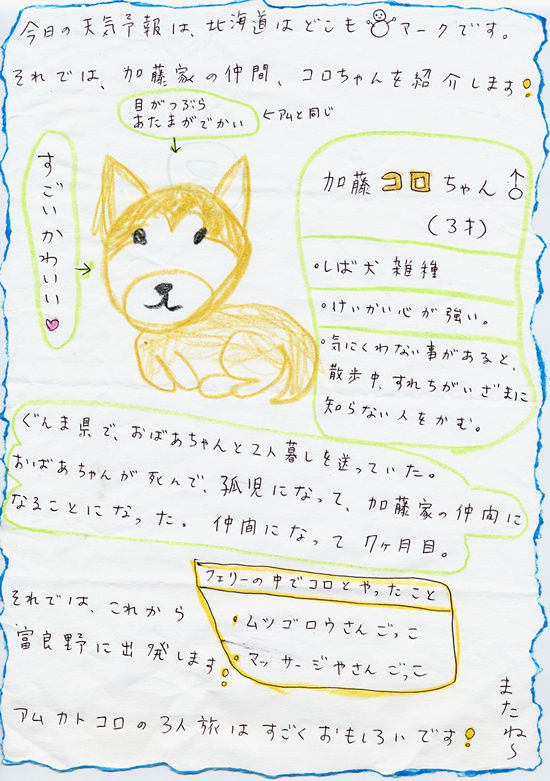 今日の天気予報は、北海道はどこも⛄マークです。
それでは、加藤家の仲間、コロちゃんを紹介します!
目がつぶら
あたまがでかい
←アムと同じ
すごいかわいい♡
加藤コロちゃん♂
(3才)
・しば犬 雑種
・けいかい心が強い。
・気にくわない事があると、
散歩中、すれちがいざまに
知らない人をかむ。
ぐんま県で、おばあちゃんと2人暮しを送っていた。
おばあちゃんが死んで、孤児になって、加藤家の仲間に
なることになった。仲間になって7ヶ月目。
フェリーの中でコロとやったこと
・ムツゴロウさんごっこ
・マッサージやさんごっこ
それでは、これから
富良野に出発します!
アムカトコロの3人旅はすごくおもしろいです!
またね〜